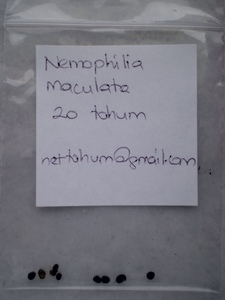 Nemophilia
maculata
20 tohum
nettohum@gmail.com